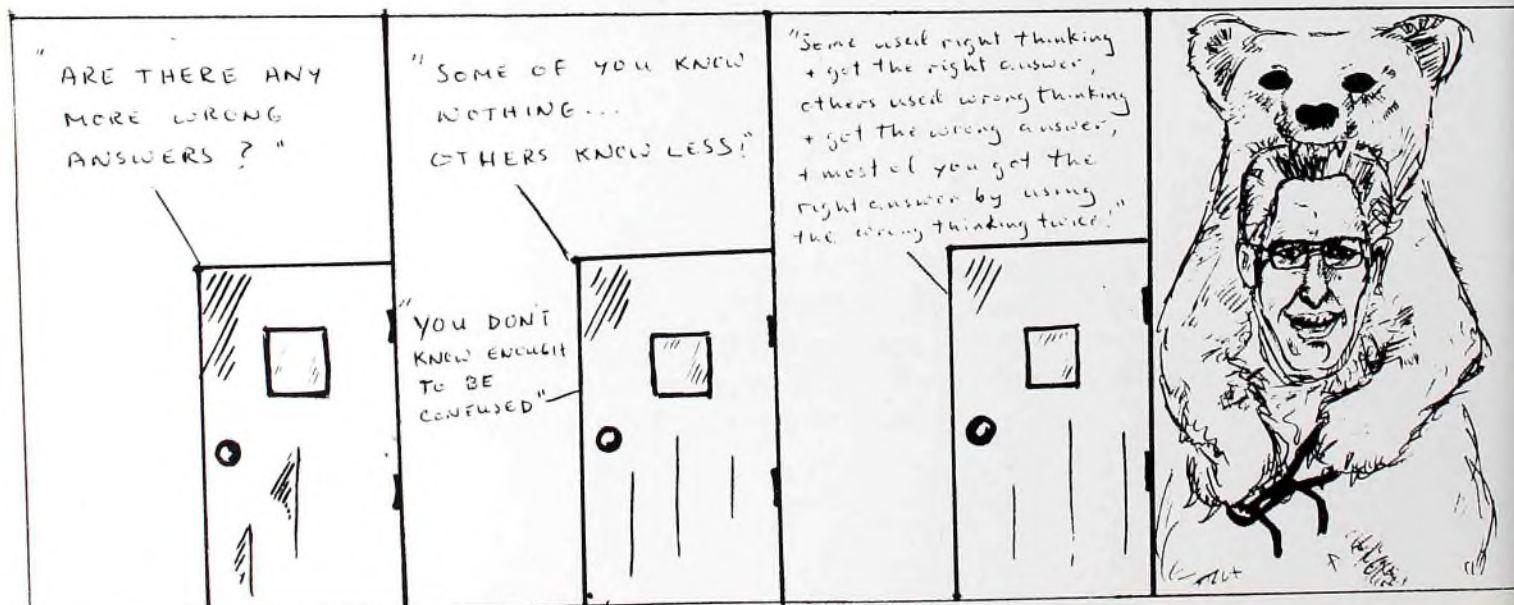 "ARE THERE ANY
MORE WRONG
ANSWERS?"
"SOME OF YOU KNOW
NOTHING...
OTHERS KNOW LESS!"
"YOU DON'T
KNOW ENOUGH
TO BE
CONFUSED"
"Some used right thinking
+ got the right answer,
others used wrong thinking
+ got the wrong answer,
+ most of you got the
right answer by using
the wrong thinking twice!"